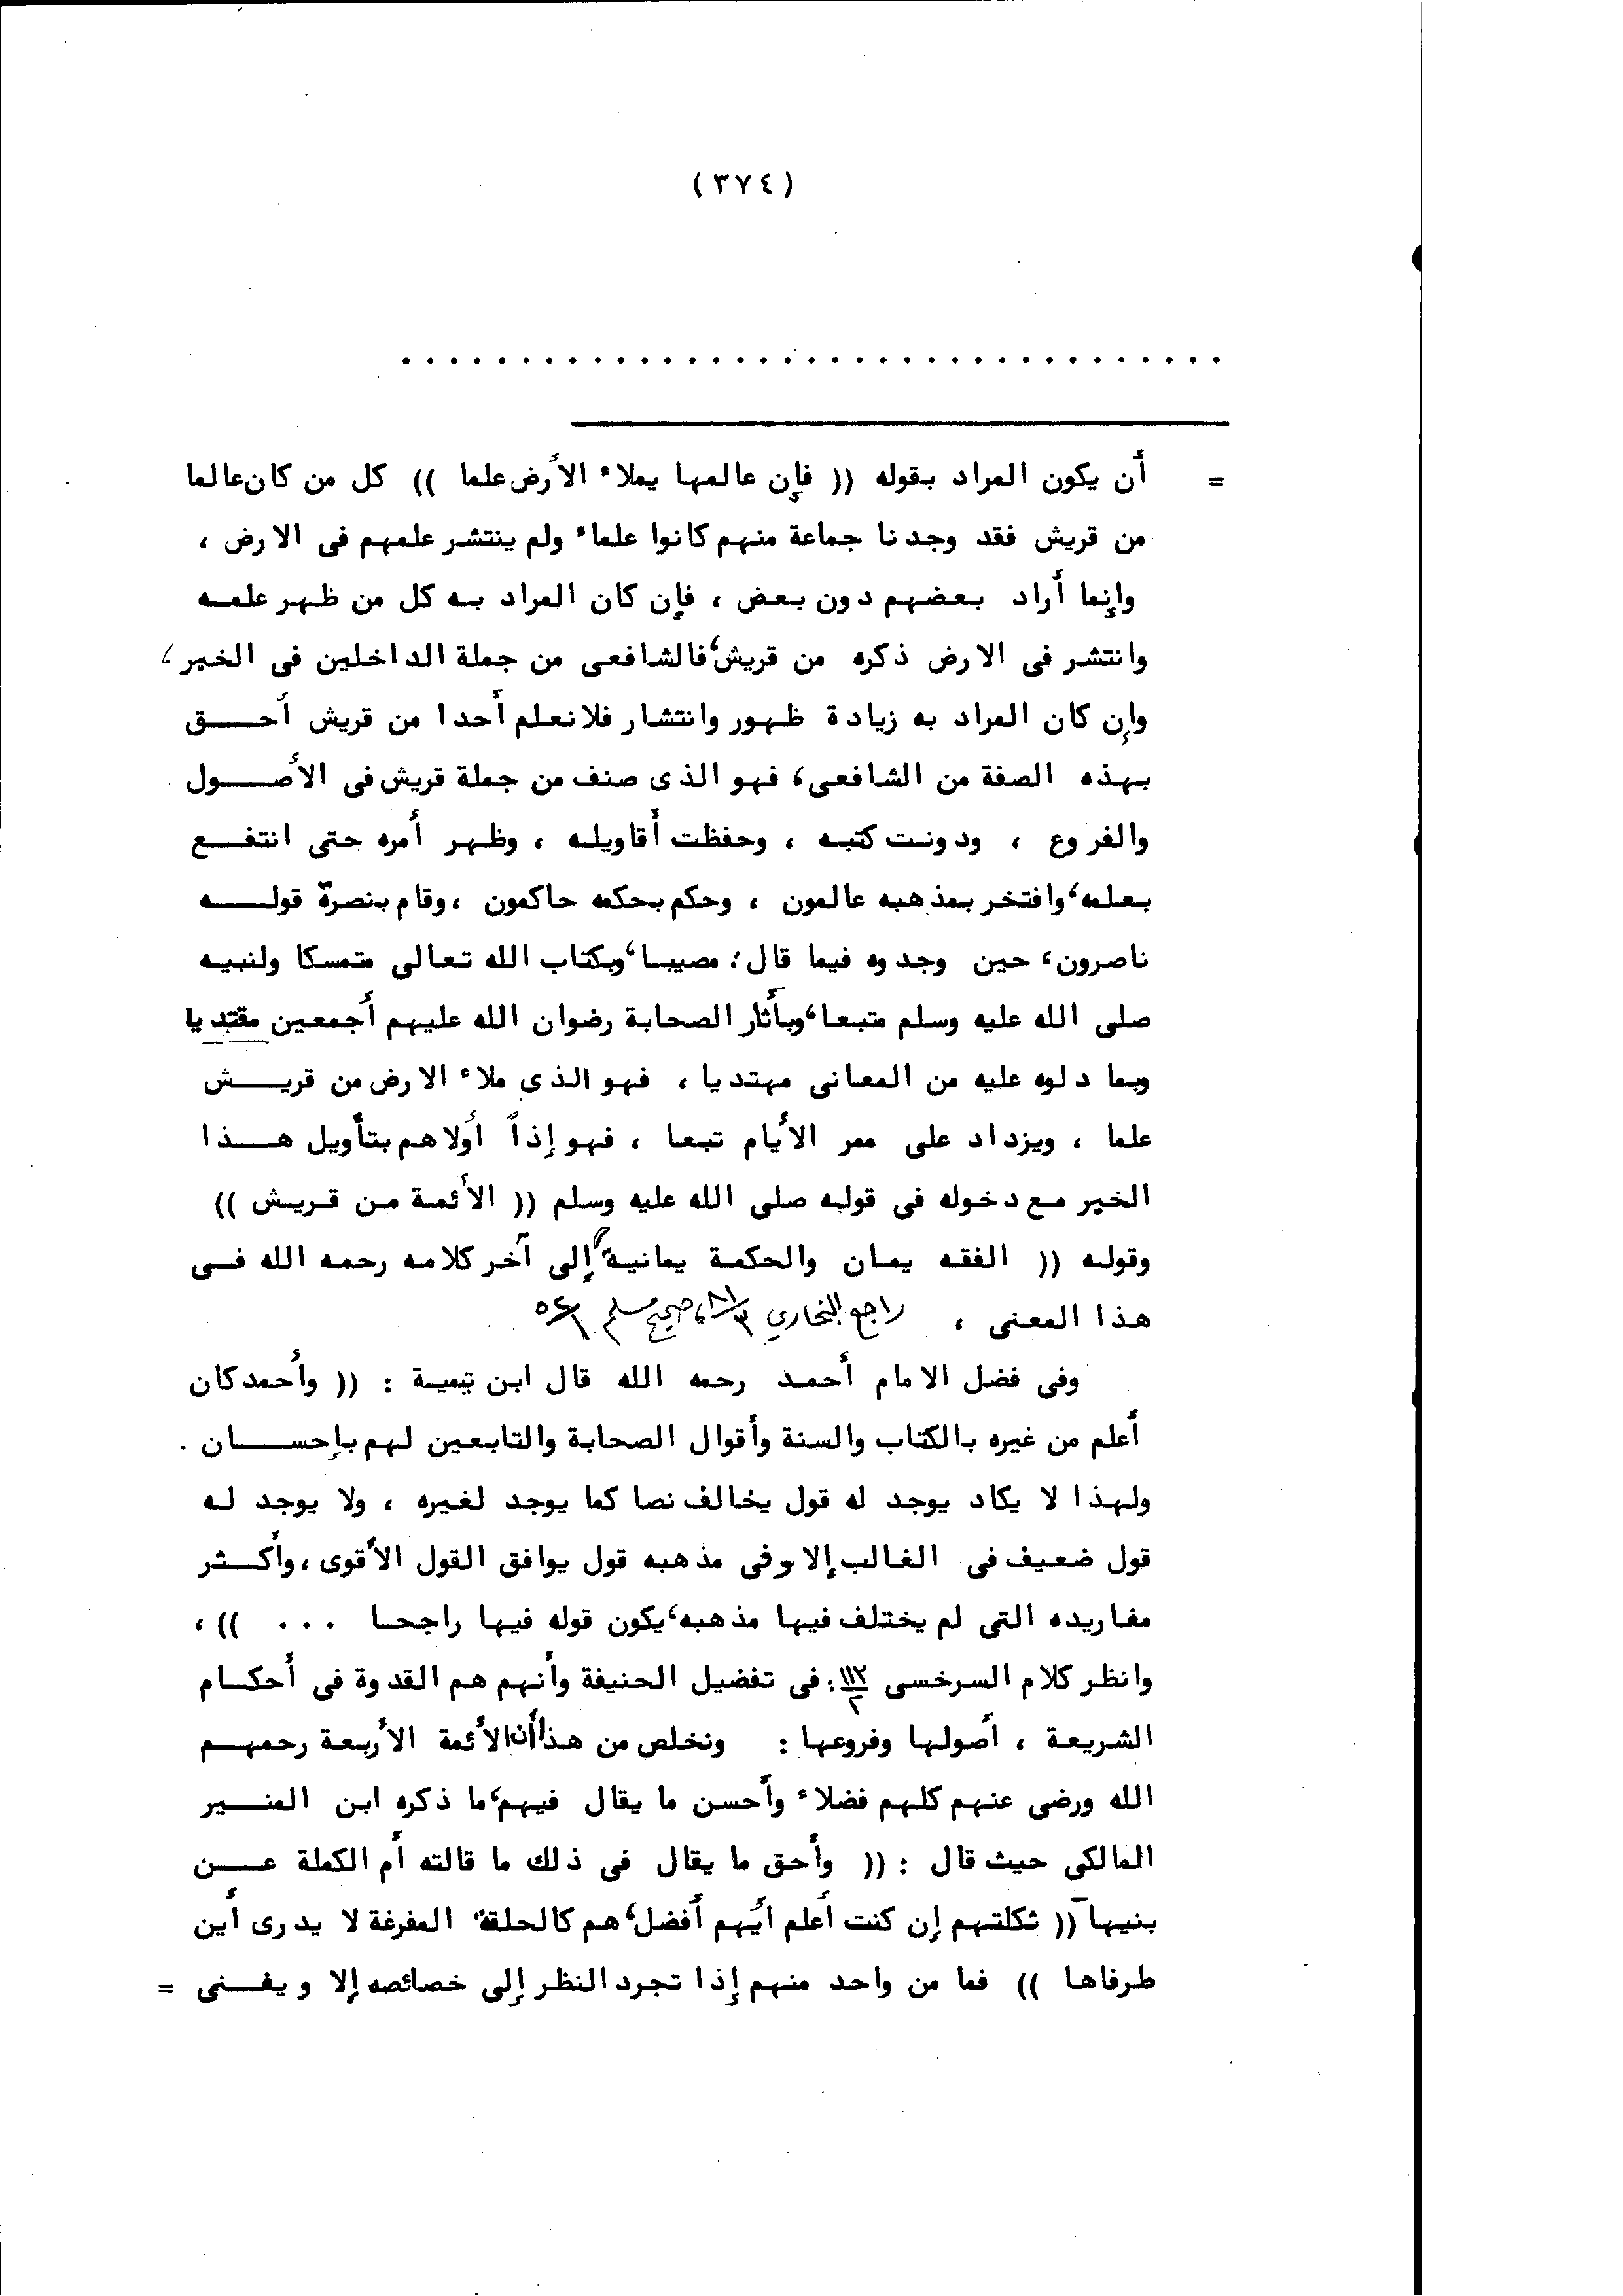 (٣٧٤)
. . . . . . . . . . . . . . . . . . . . . . . . . . . . . . . . . . .
= أن يكون المراد بقوله (( فإن عالمها يملاء الأرض علما )) كل من كان عالما
من قريش فقد وجدنا جماعة منهم كانوا علماء ولم ينتشر علمهم فى الارض ،
وإنما أراد بعضهم دون بعض ، فإن كان المراد به كل من ظهر علمــه
وانتشر فى الارض ذكره من قريش، فالشافعى من جملة الداخلين فى الخبر ،
وإن كان المراد به زيادة ظهور وانتشار فلا نعلم أحدا من قريش أحـــق
بهذه الصفة من الشافعى، فهو الذى صنف من جملة قريش فى الأصـــول
والفروع ، ودونت كتبه ، وحفظت أقاويله ، وظهر أمره حتى انتفـــع
بعلمه، وافتخر بمذهبه عالمون ، وحكم بحكمه حاكمون ، وقام بنصرة قولـــه
ناصرون، حين وجدوه فيما قال؛ مصيبا، وبكتاب الله تعالى متمسكا ولنبيــه
صلى الله عليه وسلم متبعا، وبأثار الصحابة رضوان الله عليهم أجمعين مقتديا
وبما دلوه عليه من المعانى مهتديا ، فهو الذى ملاء الارض من قريـــش
علما ، ويزداد على ممر الأيام تبعا ، فهو إذاً أولاهم بتأويل هـــذا
الخبر مع دخوله فى قوله صلى الله عليه وسلم (( الأئمة من قريش ))
وقوله (( الفقه يمان والحكمة يمانية)) إلى آخر كلامه رحمه الله فــى
هذا المعنى ، راجع البخاري صحيح مسلم
وفى فضل الامام أحمد رحمه الله قال ابن تيمية : (( وأحمد كان
أعلم من غيره بالكتاب والسنة وأقوال الصحابة والتابعين لهم بإحســـان .
ولهذا لا يكاد يوجد له قول يخالف نصا كما يوجد لغيره ، ولا يوجد لــه
قول ضعيف فى الغالب إلا وفى مذهبه قول يوافق القول الأقوى ، وأكـــثر
مفاريده التى لم يختلف فيها مذهبه، يكون قوله فيها راجحــا ... )) ،
وانظر كلام السرخسى ١١٣/٢ : فى تفضيل الحنيفة وأنهم هم القدوة فى أحكــام
الشريعة ، أصولها وفروعها : ونخلص من هذا أن الأئمة الأربعة رحمهــم
الله ورضى عنهم كلهم فضلاء وأحسن ما يقال فيهم، ما ذكره ابن المنـــير
المالكى حيث قال : (( وأحق ما يقال فى ذلك ما قالته أم الكملة عـــن
بنيها (( ثكلتهم إن كنت أعلم أيهم أفضل، هم كالحلقة المفرغة لا يدرى أين
طرفاها )) فما من واحد منهم إذا تجرد النظر إلى خصائصه إلا ويفــنى =